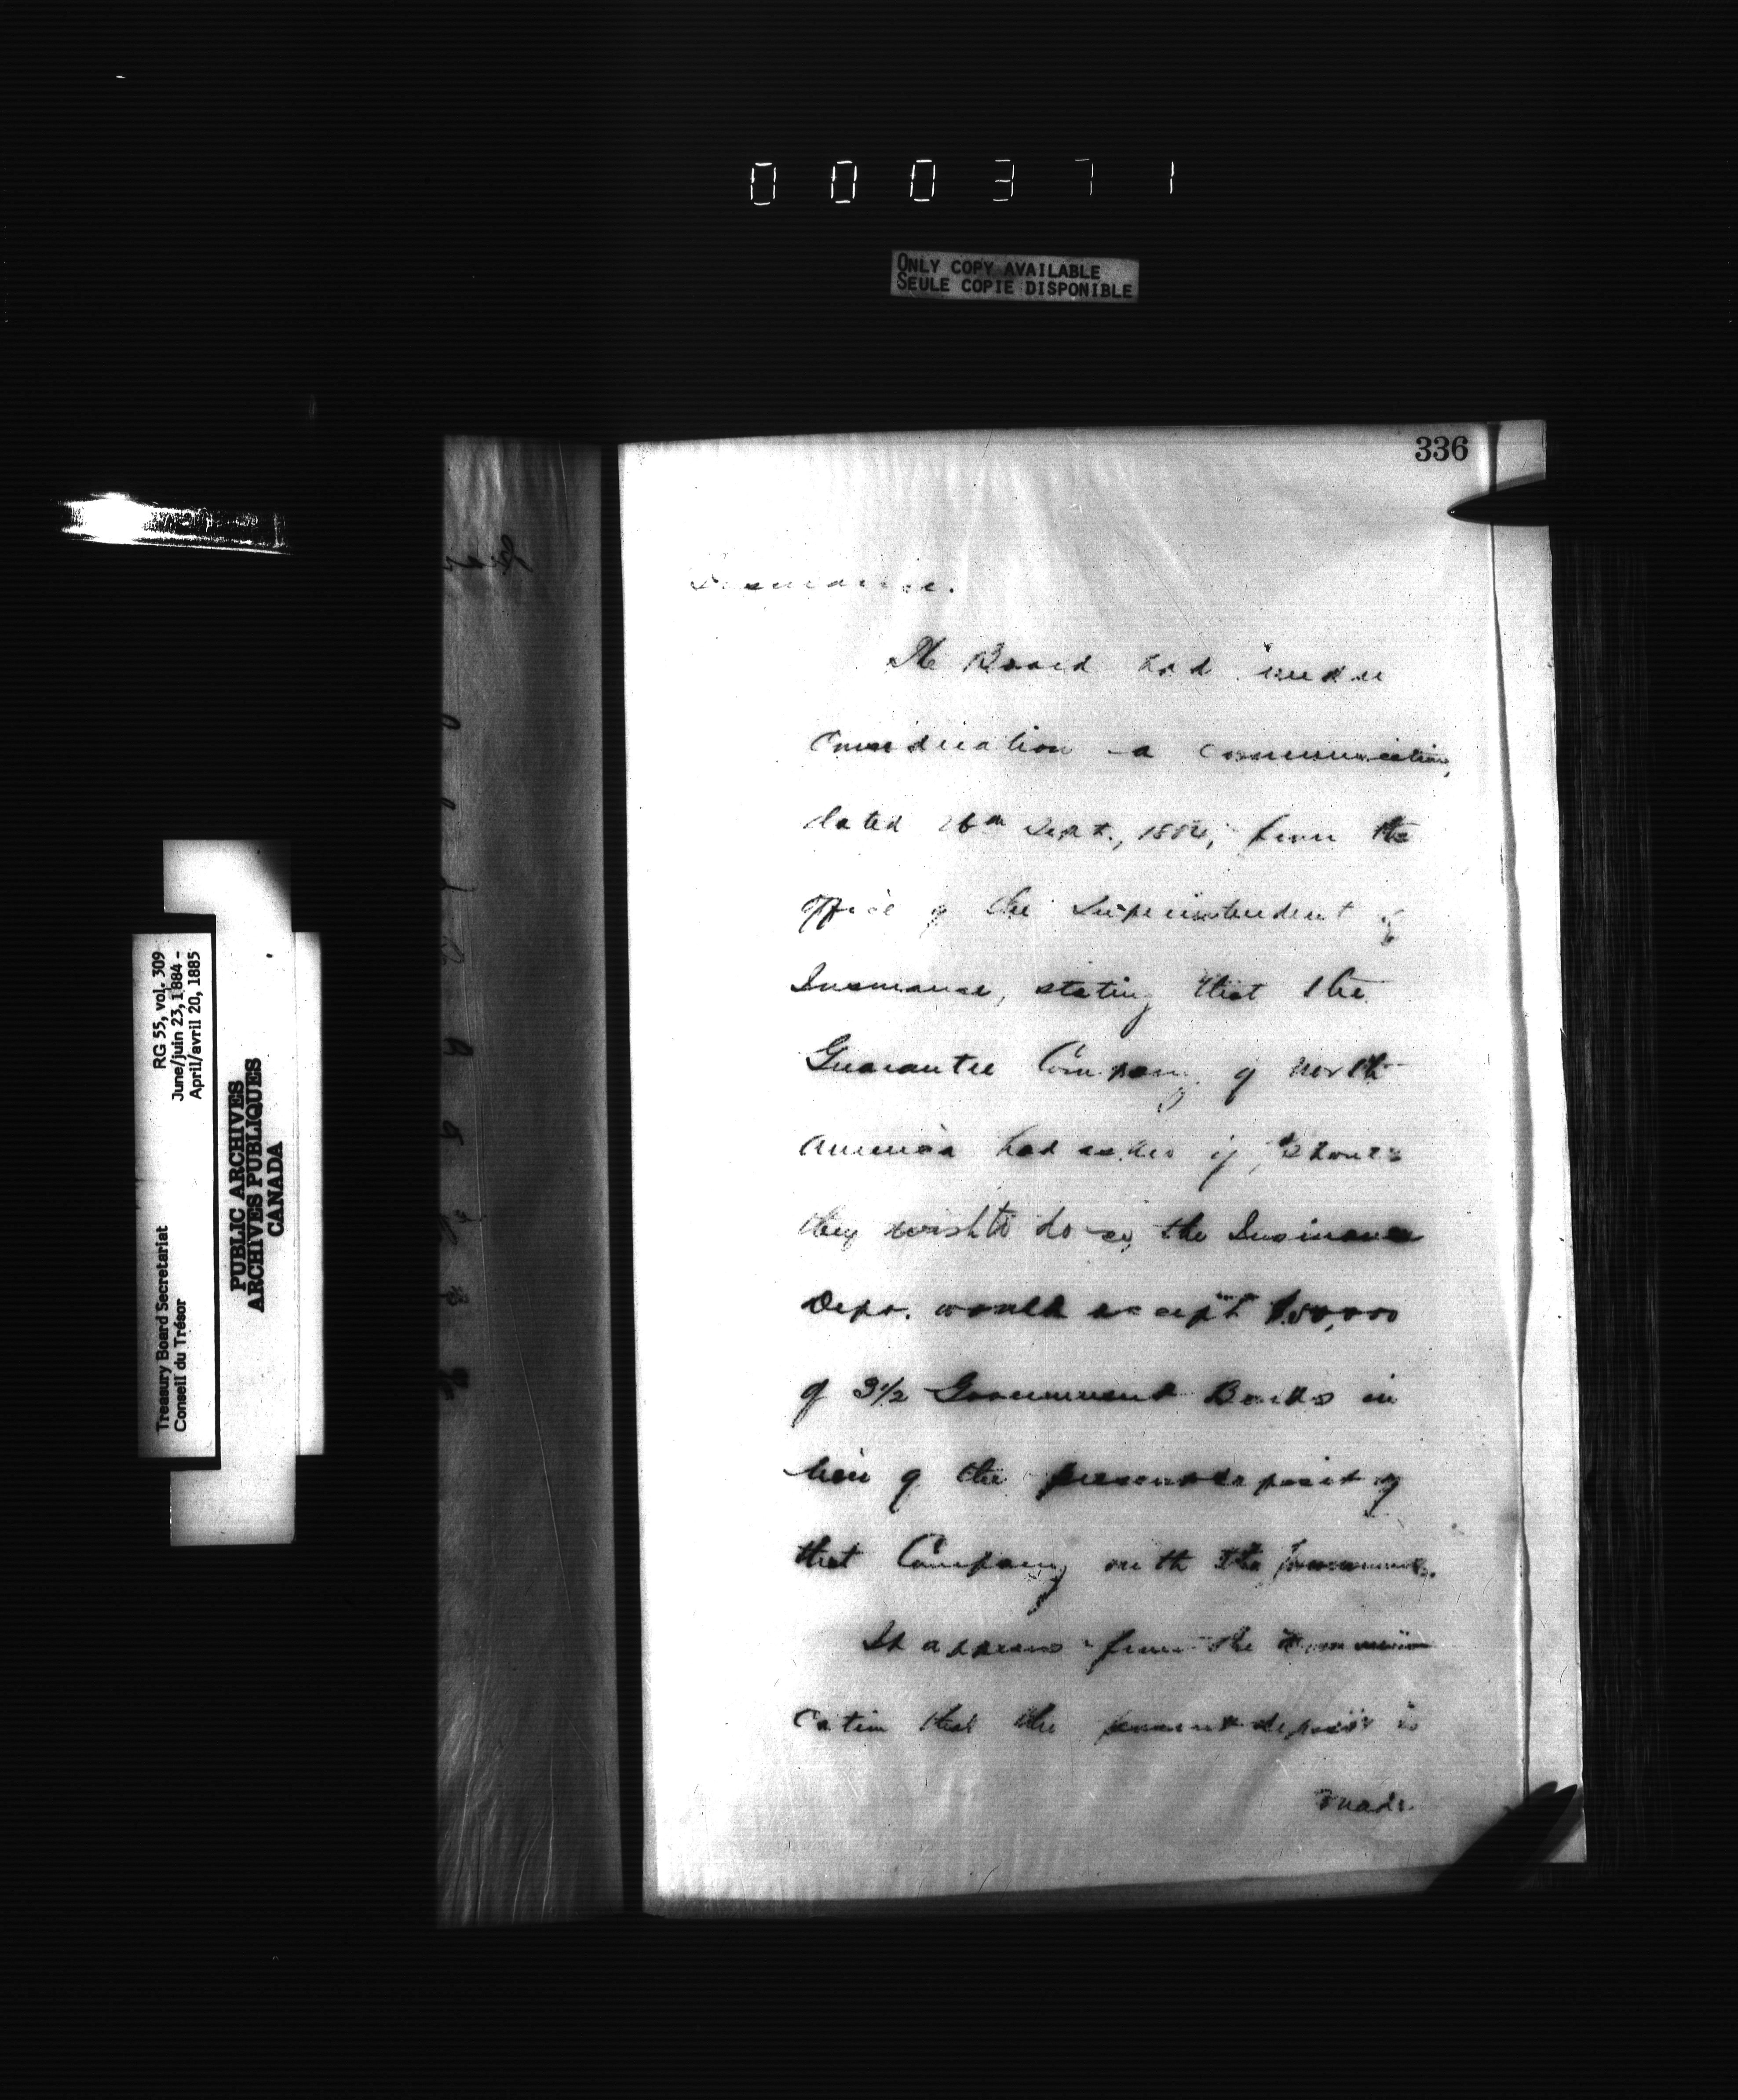 000371
ONLY COPY AVAILABLE
SEULE COPIE DISPONIBLE
336
Insurance.
The Board had under
Consideration a communication,
dated 26th Sept., 1884, from the
Office of the Superintendent of
Insurance, stating that the
Guarantee Company of North
America had asked if, should
they wish to do so, the Insurance
Dept. would accept $50,000
of 3½ Government Bonds in
lieu of the present deposit of
that Company with the Government.
It appears from the Communi
cation that the present deposit is
made
RG 55, vol. 309
June/juin 23, 1884 -
April/avril 20, 1885
Treasury Board Secretariat
Conseil du Trésor
PUBLIC ARCHIVES
ARCHIVES PUBLIQUES
CANADA